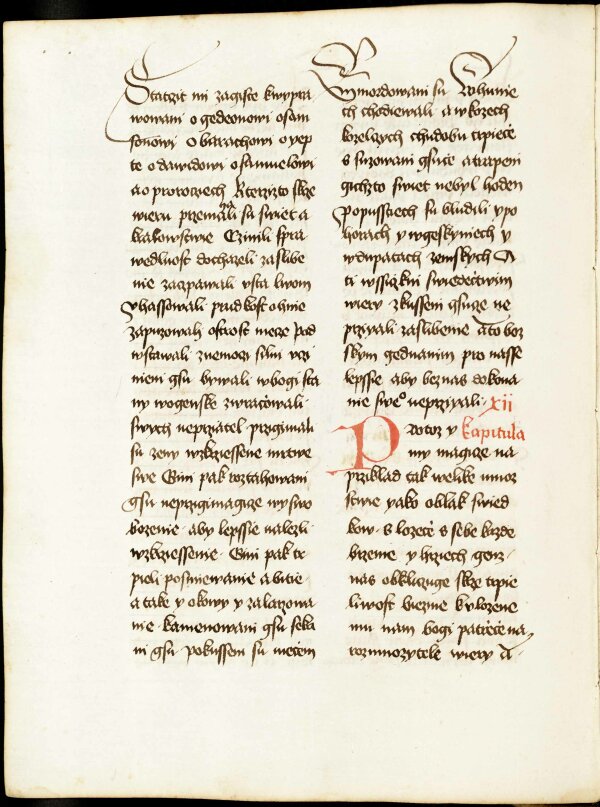 Statzit mi zagiste kwypra
wowani o gedeonowi o sam
sonowi o barachowi o yep
te o dawidowi o samuelowi
a o prorociech kterzizto skrze
wieru przemahali su swieta
kralowstwie Czinili spra
wedlnost dochazeli zaslibe
nie zaczpawali vsta lwom
Vhassowali prudkost ohnie
zapuzowali ostrost mecze pod
wstawali z nemoczi silni vczi
nieni gsu bywali w bogi sta
ny wogenske zwraczowali
swych neprzatel przigimali
su zeny wzkrziessene mrtwe
swe Gini pak roztahowani
gsu neprzigimagicze wyswo
bozenie aby lepssie nalezli
wzkrziessenie Gini pak te
pieli posmiewanie a bitie
a take y okowy y zalarzowa
nie kamenowani gsu seka
ni gsu pokusseni su mecem
Zmordowani su W hunie
ch chodiewali a w kozech
kozelczych chudobu trpiece
s suzowani gsuce a trapeni
gichzto swiet nebyl hoden
Popusstiech su bludili y po
horach y w geskyniech y
w dupatach zemskych A
ti wssiczkni swiedectwim
wiery zkusseni gsuce ne
prziyali zaslibenie A to boz
skym gednanim pro nasse
lepssie aby bez nas dokona
nie sweo neprziyali xii
Protoz y kapitula
my magicze na
przklad tak welike mnoz
stwie yako oblak swied
kow s lozece s sebe kazde
brzeme y hrziech genz
nas obkliczuge skrze trpie
liwost biezme k ulozene
mu nam bogi patrzece na
rozmnozytele wiery A